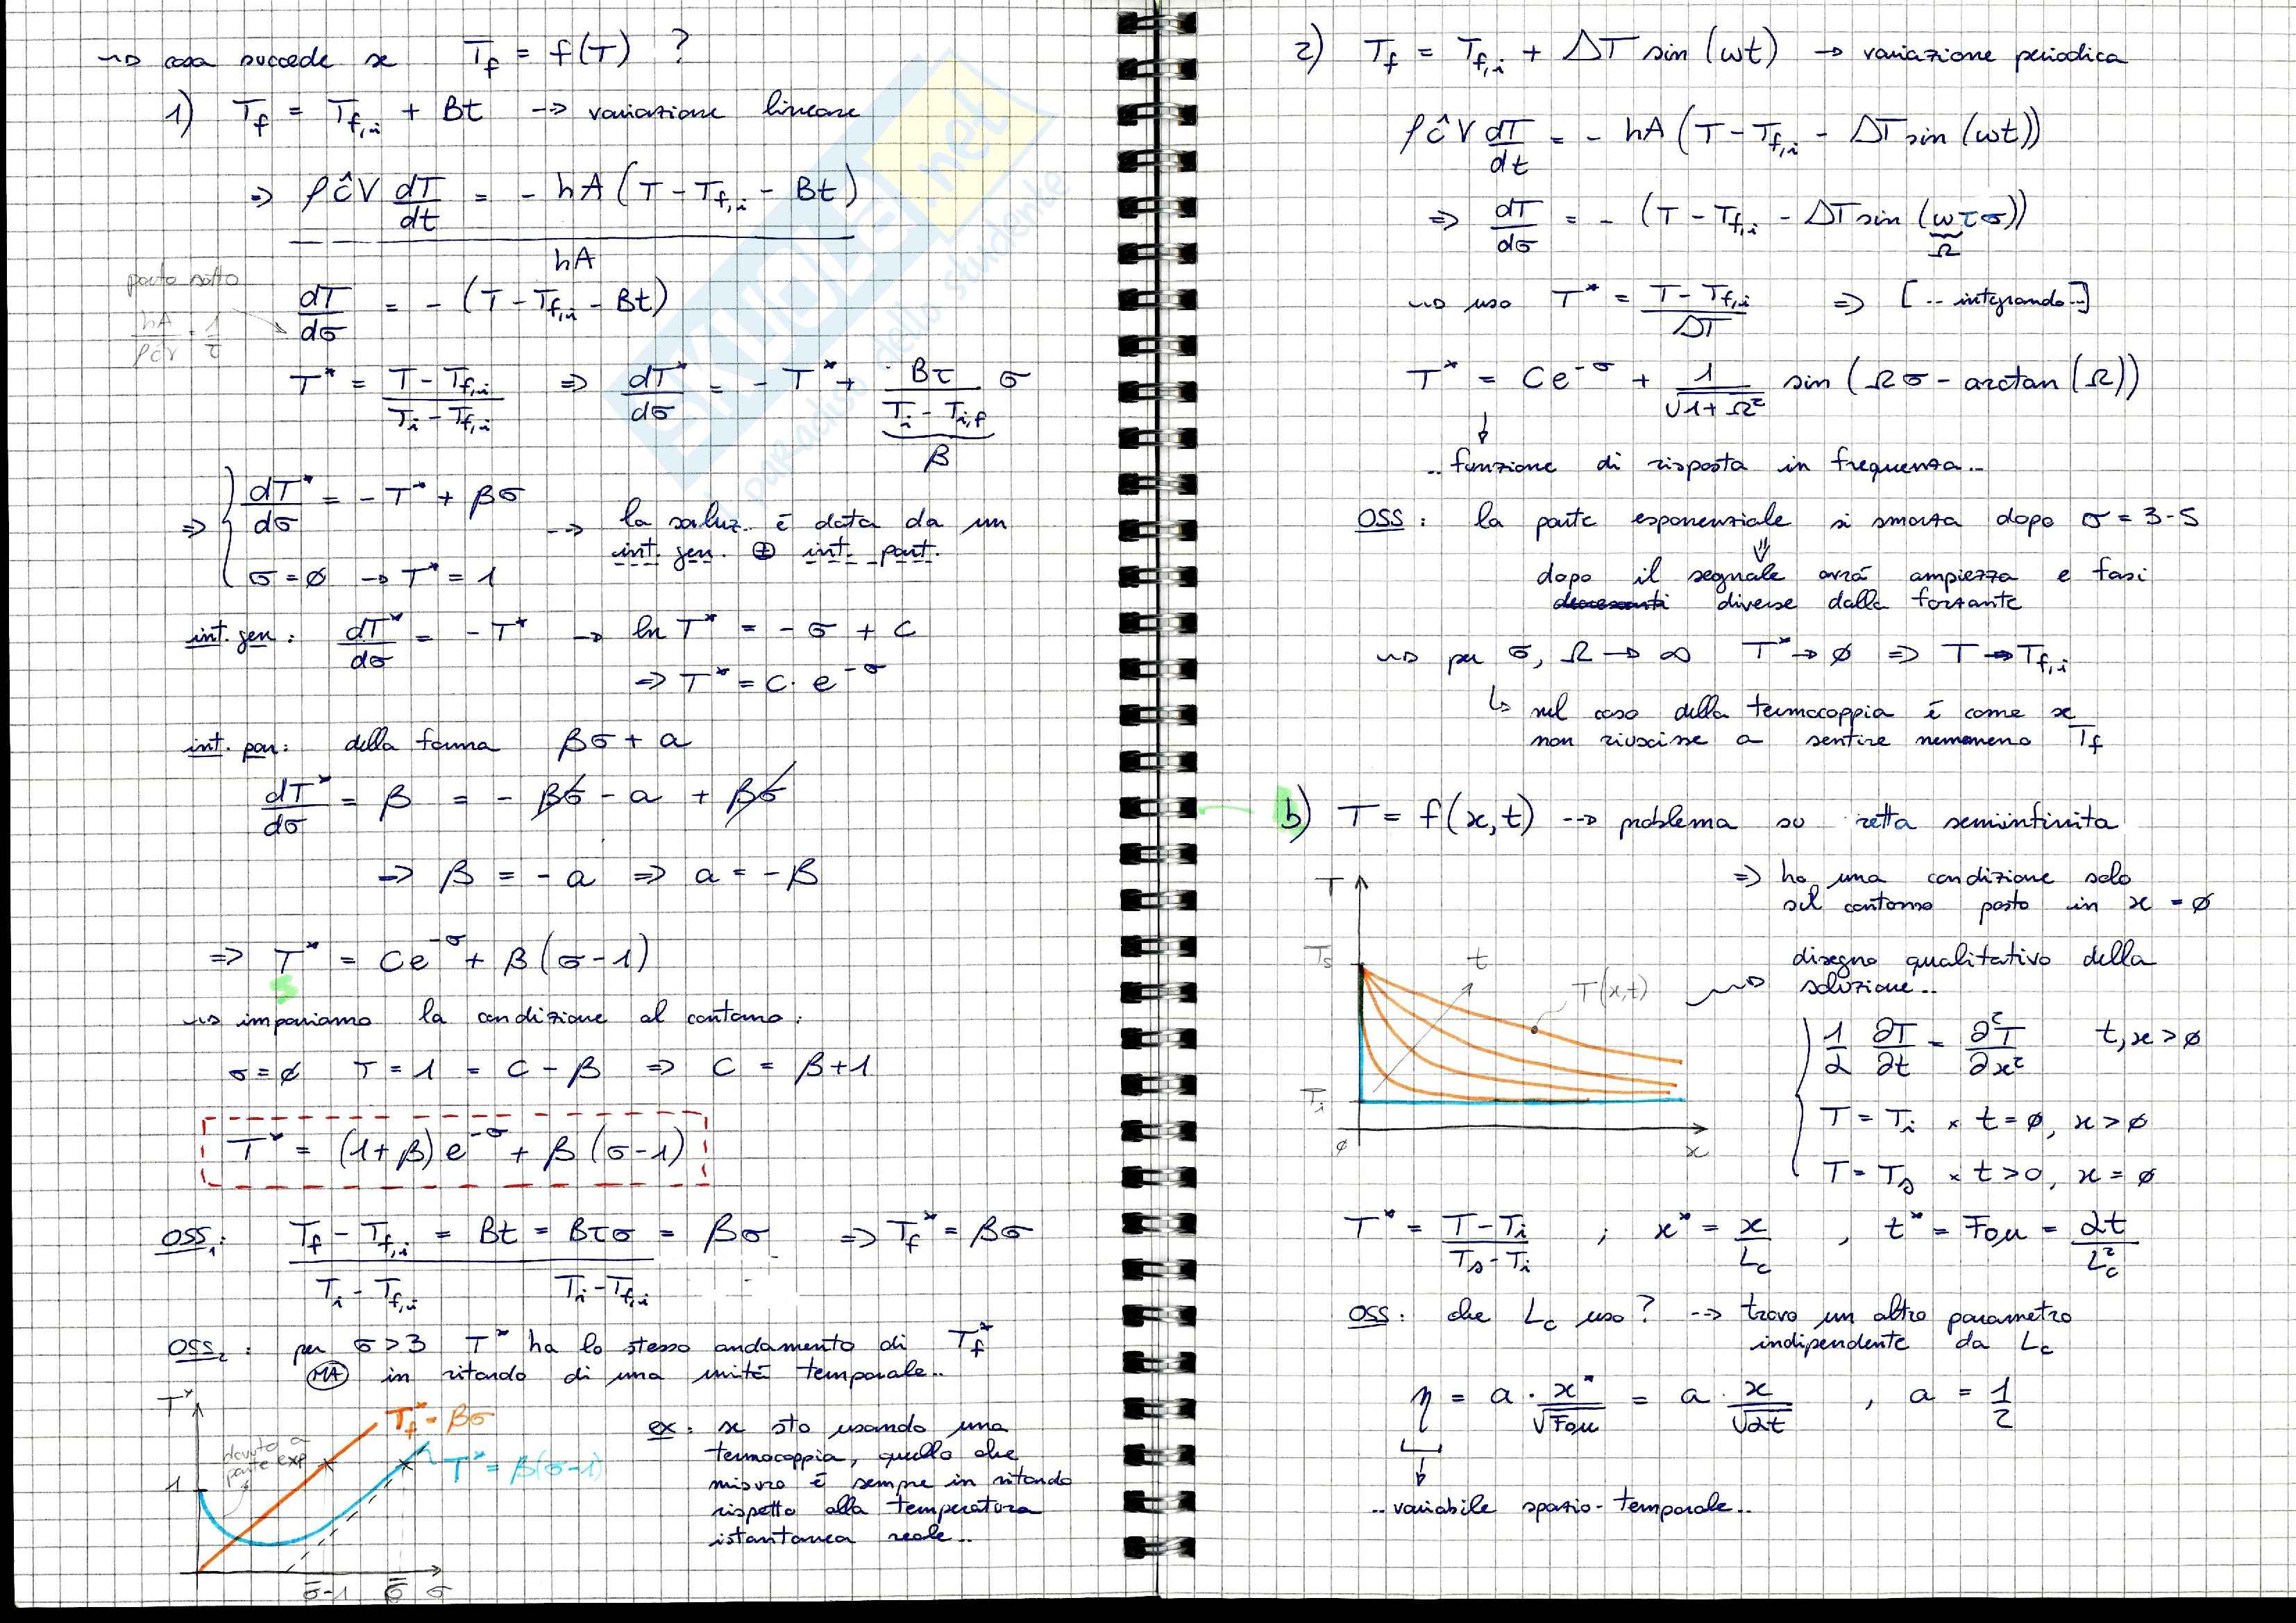 ~> cosa succede se T_f = f(T) ?
1) T_f = T_f,i + Bt --> variazione lineare
=> ρĉV dT/dt = - hA (T - T_f,i - Bt)
hA
porto sotto
hA/ρĉV = 1/τ
dT/dσ = - (T - T_f,i - Bt)
T* = (T - T_f,i)/(T_i - T_f,i) => dT*/dσ = - T* + Bτ/(T_i - T_i,f) σ
β
=> { dT*/dσ = - T* + βσ
σ = ø -> T* = 1
--> la soluz. è data da un
int. gen. ⊕ int. part.
int. gen: dT*/dσ = - T* -> ln T* = - σ + c
=> T* = c · e^-σ
int. par: della forma βσ + a
dT*/dσ = β = - βσ - a + βσ
=> β = - a => a = - β
=> T* = Ce^-σ + β (σ-1)
~> imponiamo la condizione al contorno:
σ = ø T = 1 = C - β => C = β+1
T* = (1+β) e^-σ + β (σ-1)
OSS₁: (T_f - T_f,i)/(T_i - T_f,i) = Bt = Bτσ/(T_i - T_f,i) = βσ => T_f* = βσ
OSS₂: per σ>3 T* ha lo stesso andamento di T_f*
MA in ritardo di una unità temporale..
T*
T_f* = βσ
dovuto a
parte exp
T* = β(σ-1)
1
σ̄-1 σ̄ σ
ex: se sto usando una
termocoppia, quello che
misuro è sempre in ritardo
rispetto alla temperatura
istantanea reale..
2) T_f = T_f,i + ΔT sin (ωt) -> variazione periodica
ρĉV dT/dt = - hA (T - T_f,i - ΔT sin (ωt))
=> dT/dσ = - (T - T_f,i - ΔT sin (ωτσ))
Ω
~> uso T* = (T - T_f,i)/ΔT => [.. integrando ..]
T* = Ce^-σ + 1/√(1+Ω²) sin (Ωσ - arctan (Ω))
.. funzione di risposta in frequenza..
OSS: la parte esponenziale si smorza dopo σ = 3-5
dopo il segnale avrà ampiezza e fasi
diverse dalla forzante
~> per σ, Ω -> ∞ T* -> ø => T -> T_f,i
↳ nel caso della termocoppia è come se
non riuscisse a sentire nemmeno T_f
b) T = f(x,t) --> problema su retta semiinfinita
=> ho una condizione solo
sul contorno posto in x = ø
T
T_s
t
T(x,t)
T_i
ø
x
~> disegno qualitativo della
soluzione..
{ 1/α ∂T/∂t = ∂²T/∂x² t,x > ø
T = T_i × t = ø, x > ø
T = T_s × t > 0, x = ø
T* = (T - T_i)/(T_s - T_i) ; x* = x/L_c , t* = Fou = αt/L_c²
OSS: che L_c uso? --> trovo un altro parametro
indipendente da L_c
η = a · x*/√Fou = a · x/√αt , a = 1/2
.. variabile spazio-temporale..